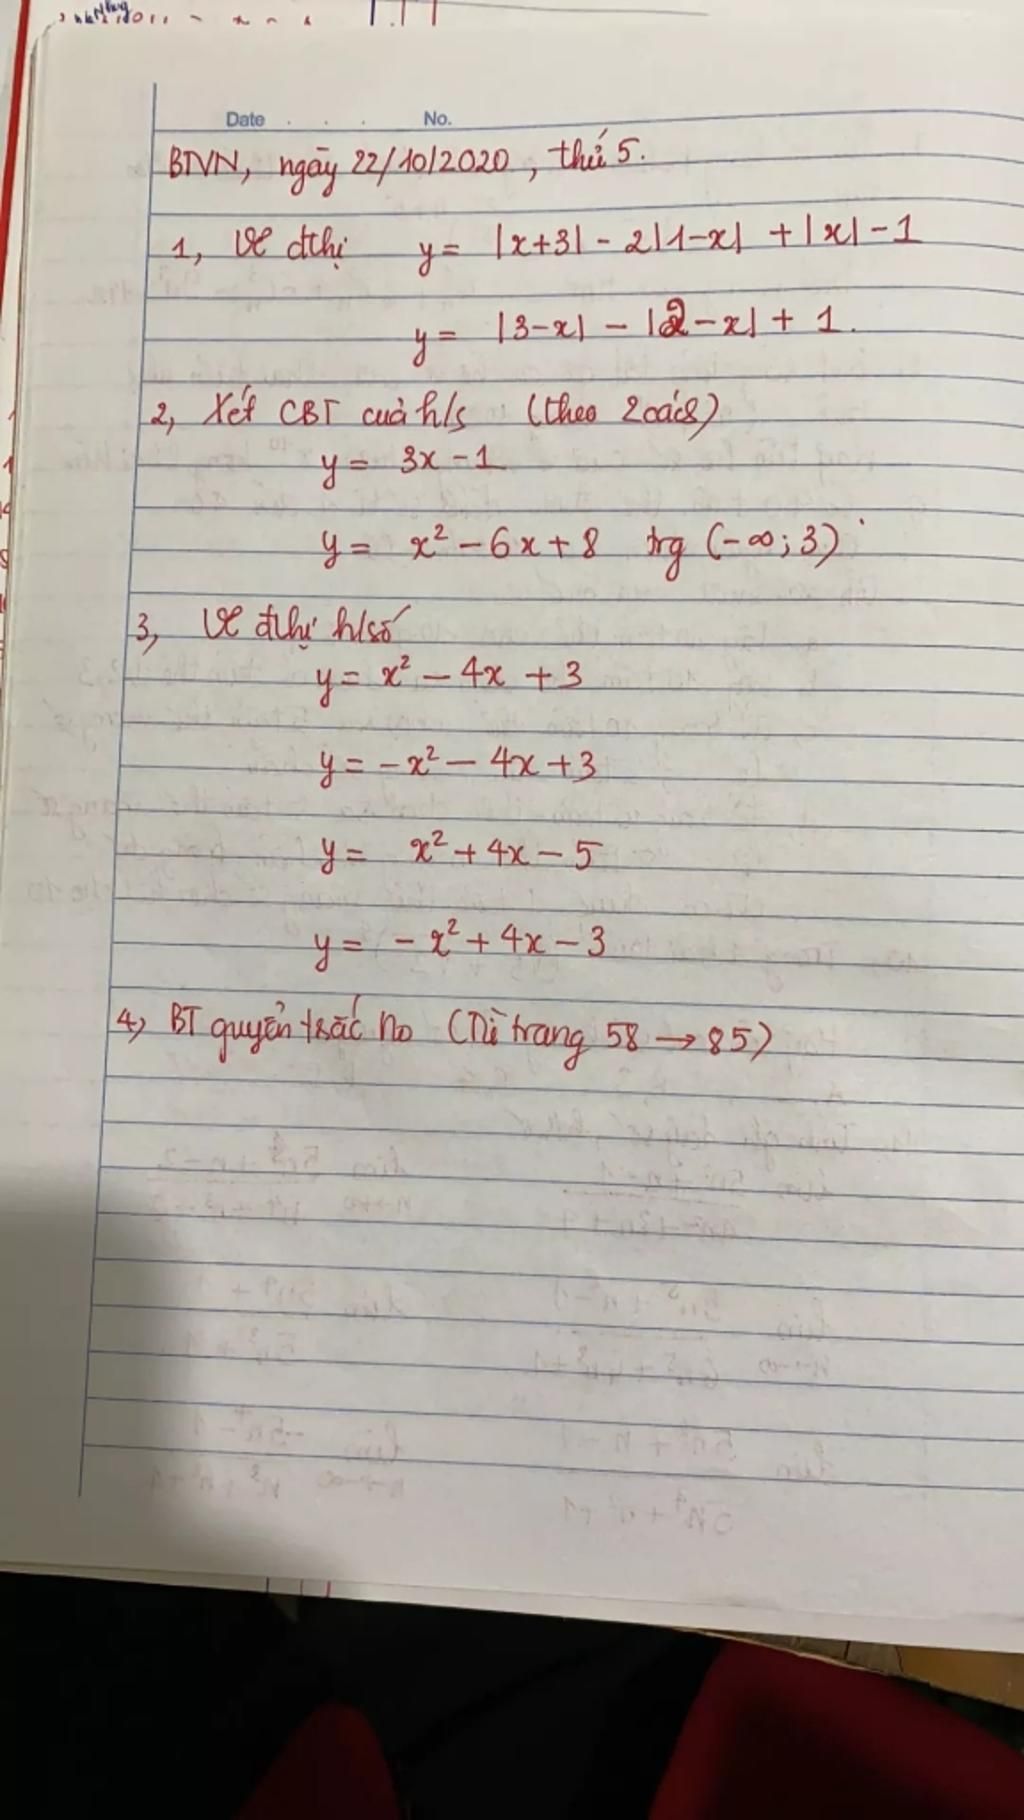 Date . . . No.
BTVN, ngày 22/10/2020, thứ 5.
1, Vẽ đthị y = |x+3| - 2|1-x| + |x| - 1
y = |3-x| - |2-x| + 1.
2, Xét CBT cuả h/s (theo 2 cách)
y = 3x - 1
y = x² - 6x + 8 trg (-∞; 3)
3, Vẽ đthị h/số
y = x² - 4x + 3
y = -x² - 4x + 3
y = x² + 4x - 5
y = -x² + 4x - 3
4, BT quyển trắc no (Từ trang 58 → 85)